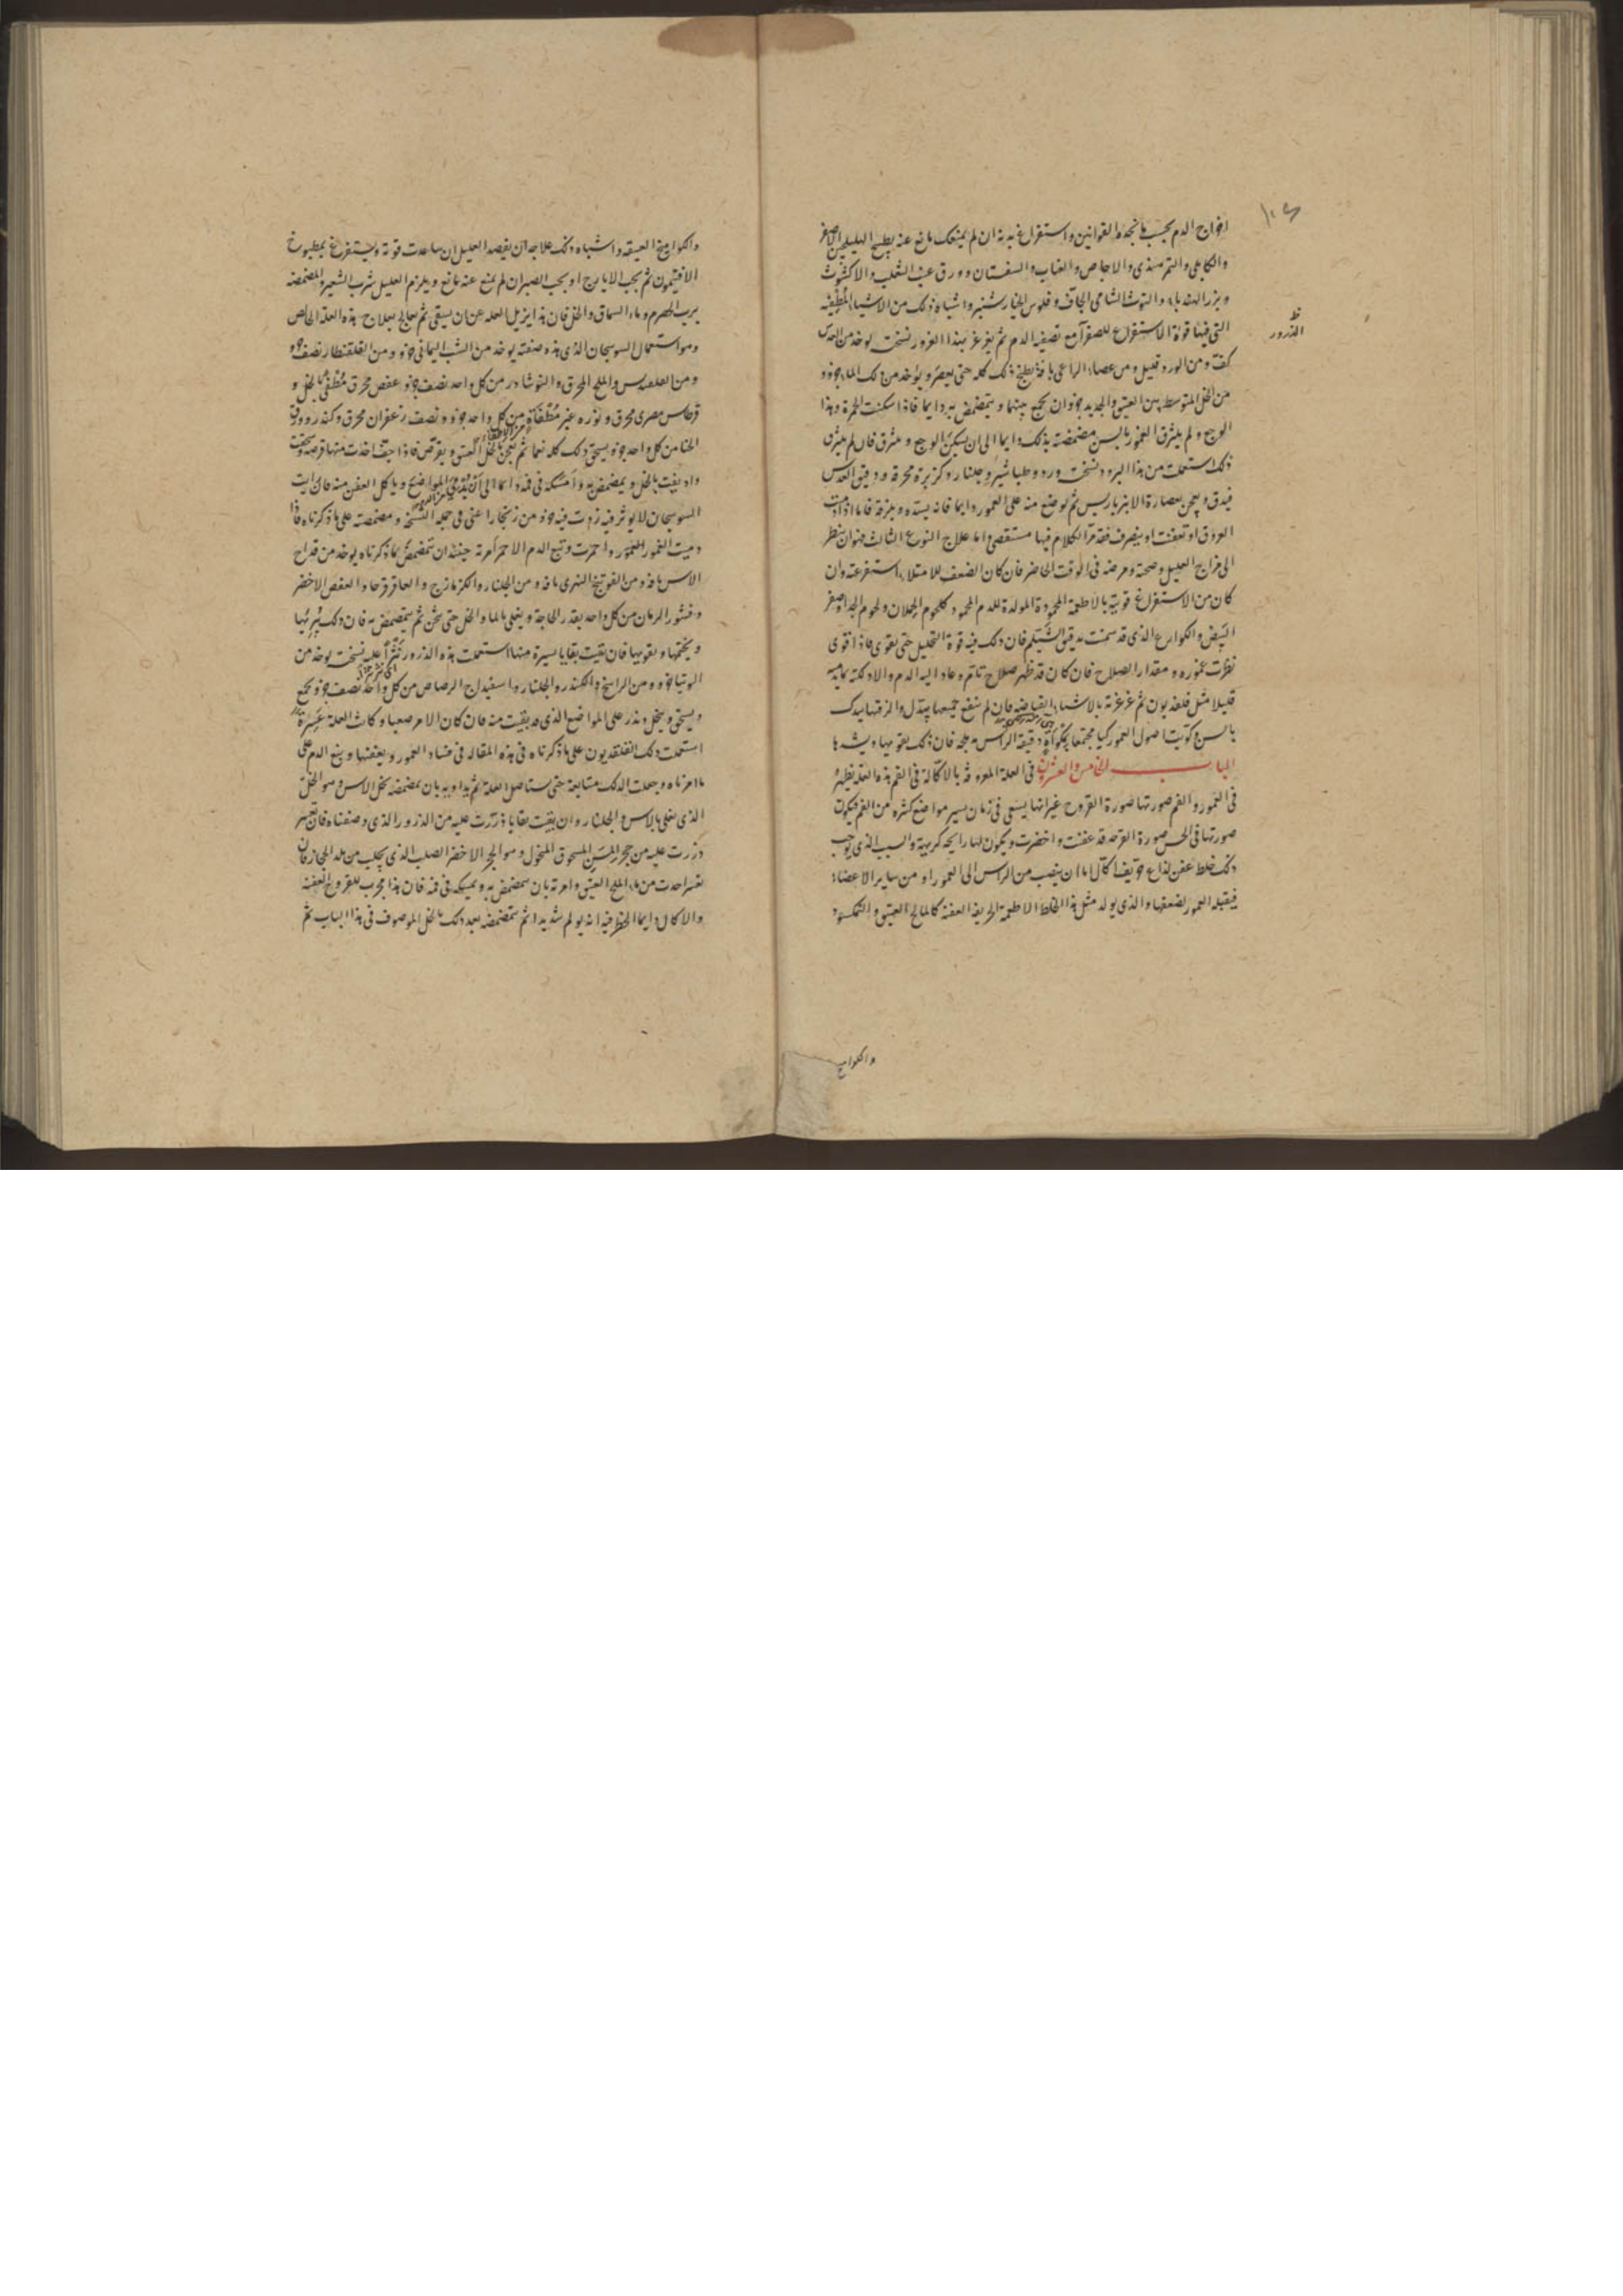 اخراج الدم بحسب ما تجده القوانين واستفراغ بدنه ان لم يمنعك مانع عنه بطبيخ الهليلج الاصفر
والكابلى والتمر هندى والاجاص والعناب والسفستان وورق عنب الثعلب والاكشوث
وبزر الهندباء والتوث الشامى الجاف وفلوس الخيارشنبر واشباه ذلك من الاشياء المطفيه
التى فيها قوة الاستفراغ للصفرآ مع تصفيه الدم ثم يغرغر بهذا الغرور نسخت يوخذ من العدس
ظ
الذرور
كفت ومن الورد قليل ومن عصاء الراعى باقة يطبخ ذلك كله حتى يعصر ويوخذ من ذلك الماء جزو
من الخل المتوسط بين العتيق والجديد جزوان يجمع بينهما ويتمضمض به دايما فاذا سكنت الحمرة وهذا
الوجع ولم يلتزق العمور بالسن مضمضته بذلك دايما الى ان يسكن الوجع ويلتزق فان لم يلتزق
ذلك استعملت من هذا البرود نسخت ورد وطباشير وجلنار وكزبرة محرقة ودقيق العدس
فيدق ويعجن بعصارة الانبرباريس ثم يوضع منه على العمور دايما فانه يشده ويلزقه فاما اذا دمت
العروق او تعفنت او ينصرف فقد مر الكلام فيها مستقصى واما علاج النوع الثالث فهو ان ينظر
الى مزاج العليل وصحته ومرضه فى الوقت الحاضر فان كان الضعف للامتلاء استفرغته وان
كان من الاستفراغ قويته بالاطعمة المحمودة المولدة للدم المحمود كلحوم الحملان ولحوم الجدا وصفر
البيض والكوارع الذى قد سمنت بدقيق الشيلم فان ذلك فيه قوة التحليل حتى يقوى فاذا قوى
نظرت عموره ومقدار الصلاح فان كان قد ظهر صلاح تام وعاد اليه الدم والا دلكته بمايه
قليلا مثل فلفديون ثم غرغرته بالاشياء القابضه فان لم ينفع جميعها بتدل والزقتها بيدك
بالسن وكويت اصول العمور كيا مجتمعا بمكواة دقيقة الراس محلجه فان ذلك يقويها ويشدها
الباب الخامس والعشرون فى العلة المعروفة بالاكالة فى الفم هذه العلة يظهر
فى العمور والفم صورتها صورة القروح غير انها يسعى فى زمان يسير مواضع كثيره من الفم فيكون
صورتها فى الحس صورة القرحه قد عفنت واخضرت ويكون لها رايحه كريهة والسبب الذى يوجب
ذلك خلط عفن لذاع حريف اكال اما ان ينصب من الراس الى العمور او من ساير الاعضاء
فيقبله العمور لضعفها والذى يولد مثل هذا الخلط الاطعمة الحريفه العفنه كالمالح العتيق والنمكسود
والكواميخ
والكواميخ العتيقه واشباه ذلك علاجه ان يفصد العليل ان ساعدت قوته ويستفرغ بمطبوخ
الافتيمون ثم بحب الايارج او بحب الصبر ان لم يمنع عنه مانع ويلزم العليل شرب الشعير والمضمضه
برب الحصرم وماء السماق والخل فان هذا يزيل العله عن ان يبقى ثم يعالج بعلاج هذه العلة الخاص
وهو استعمال السوسجان الذى هذه صفته يوخذ من الشب اليمانى جزو ومن القلقطار نصف جزو
ومن القلقديس والملح المحرق والنوشادر من كل واحد نصف جزو عفص محرق مطفى بالخل و
قرطاس مصرى محرق ونوره غير مطفاة من كل واحد جزو ونصف زعفران محرق وكندر وورق
الحنا من كل واحد جزو يسحق ذلك كله نعما ثم يعجن بالخل العتيق ويقرص فاذا جفت اخذت منها قرصة وسحقت
واديفت بالخل ويمضمض به وامسكه فى فمه دايما الى ان يدمى المواضع وياكل العفن منه فان رايت
السوسجان لا يوثر فيه زدت فيه جزو من زنجار اعنى فى جمله النسخه ومضمضته على ما ذكرناه فاذا
دميت العمور واحمرت وتبع الدم الاحمر امرته حينئذ ان يتمضمض بما ذكرناه يوخذ من قداح
الاس باقه ومن الفوتنج النهرى باقه ومن الجلنار والكزمازج والعاقرقرحا والعفص الاخضر
وقشور الرمان من كل واحد بقدر الحاجة ويغلى بالماء والخل حتى يثخن ثم يتمضمض به فان ذلك يبريها
ويختمها ويقويها فان بقيت بقايا يسيرة منها استعملت هذه الذرور نثرا عليه نسخت يوخذ من
التوتيا جزو ومن الراسخ والكندر والجلنار واسفيداج الرصاص من كل واحد نصف جزو يجمع
ويسحق وينخل ويذر على المواضع الذى قد بقيت منه فان كان الامر صعبا وكانت العلة عسرة
استعملت ذلك الفلفديون على ما ذكرناه فى هذه المقاله فى فساد العمور وبعفنها وينبع الدم على
ما امرناه وجعلت الدلك متتابعة حتى يستاصل العلة ثم يداويه بان يمضمضه بخل الاس وهو الخل
الذى يغلى بالاس والجلنار وان بقيت بقايا ذررت عليه من الذرور الذى وصفناه فان تعسر
ذررت عليه من حجر المسن المسحوق المنخول وهو الحجر الاخضر الصلب الذى يجلب من بلد الحجاز فان
تعسر اخذت من ماء الملح العتيق وامرته بان يتمضمض به ويمسكه فى فمه فان هذا مجرب للقروح العفنه
والاكال دايما الخطر فيه انه يولم شديدا ثم يتمضمضه بعد ذلك بالخل الموصوف فى هذا الباب ثم